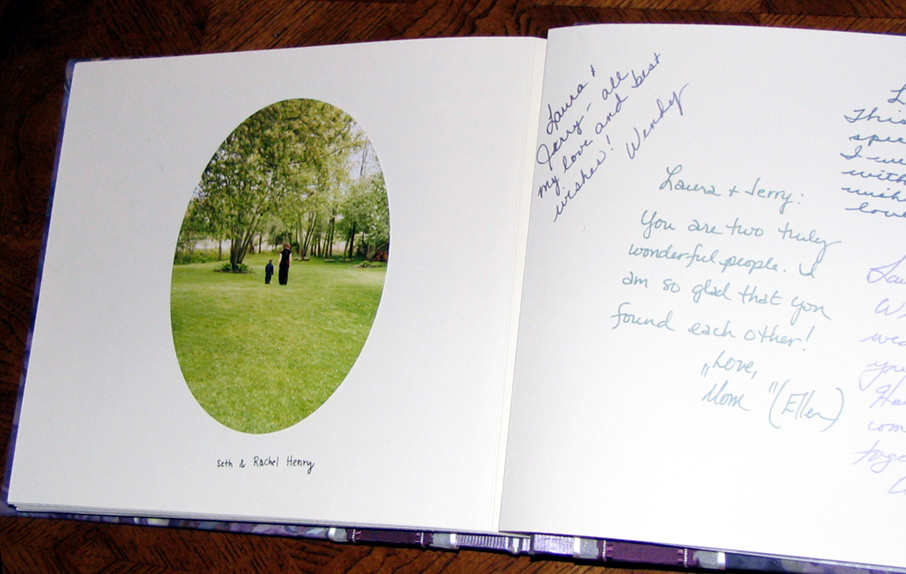 Seth & Rachel Henry
Laura &
Jerry - all
my love and best
wishes! Wendy
Laura + Jerry:
You are two truly
wonderful people. I
am so glad that you
found each other!
"Love,
Mom" (Ellen)
This
spec
I we
with
wish
love
Lau
W
wea
you
Ha
com
toge